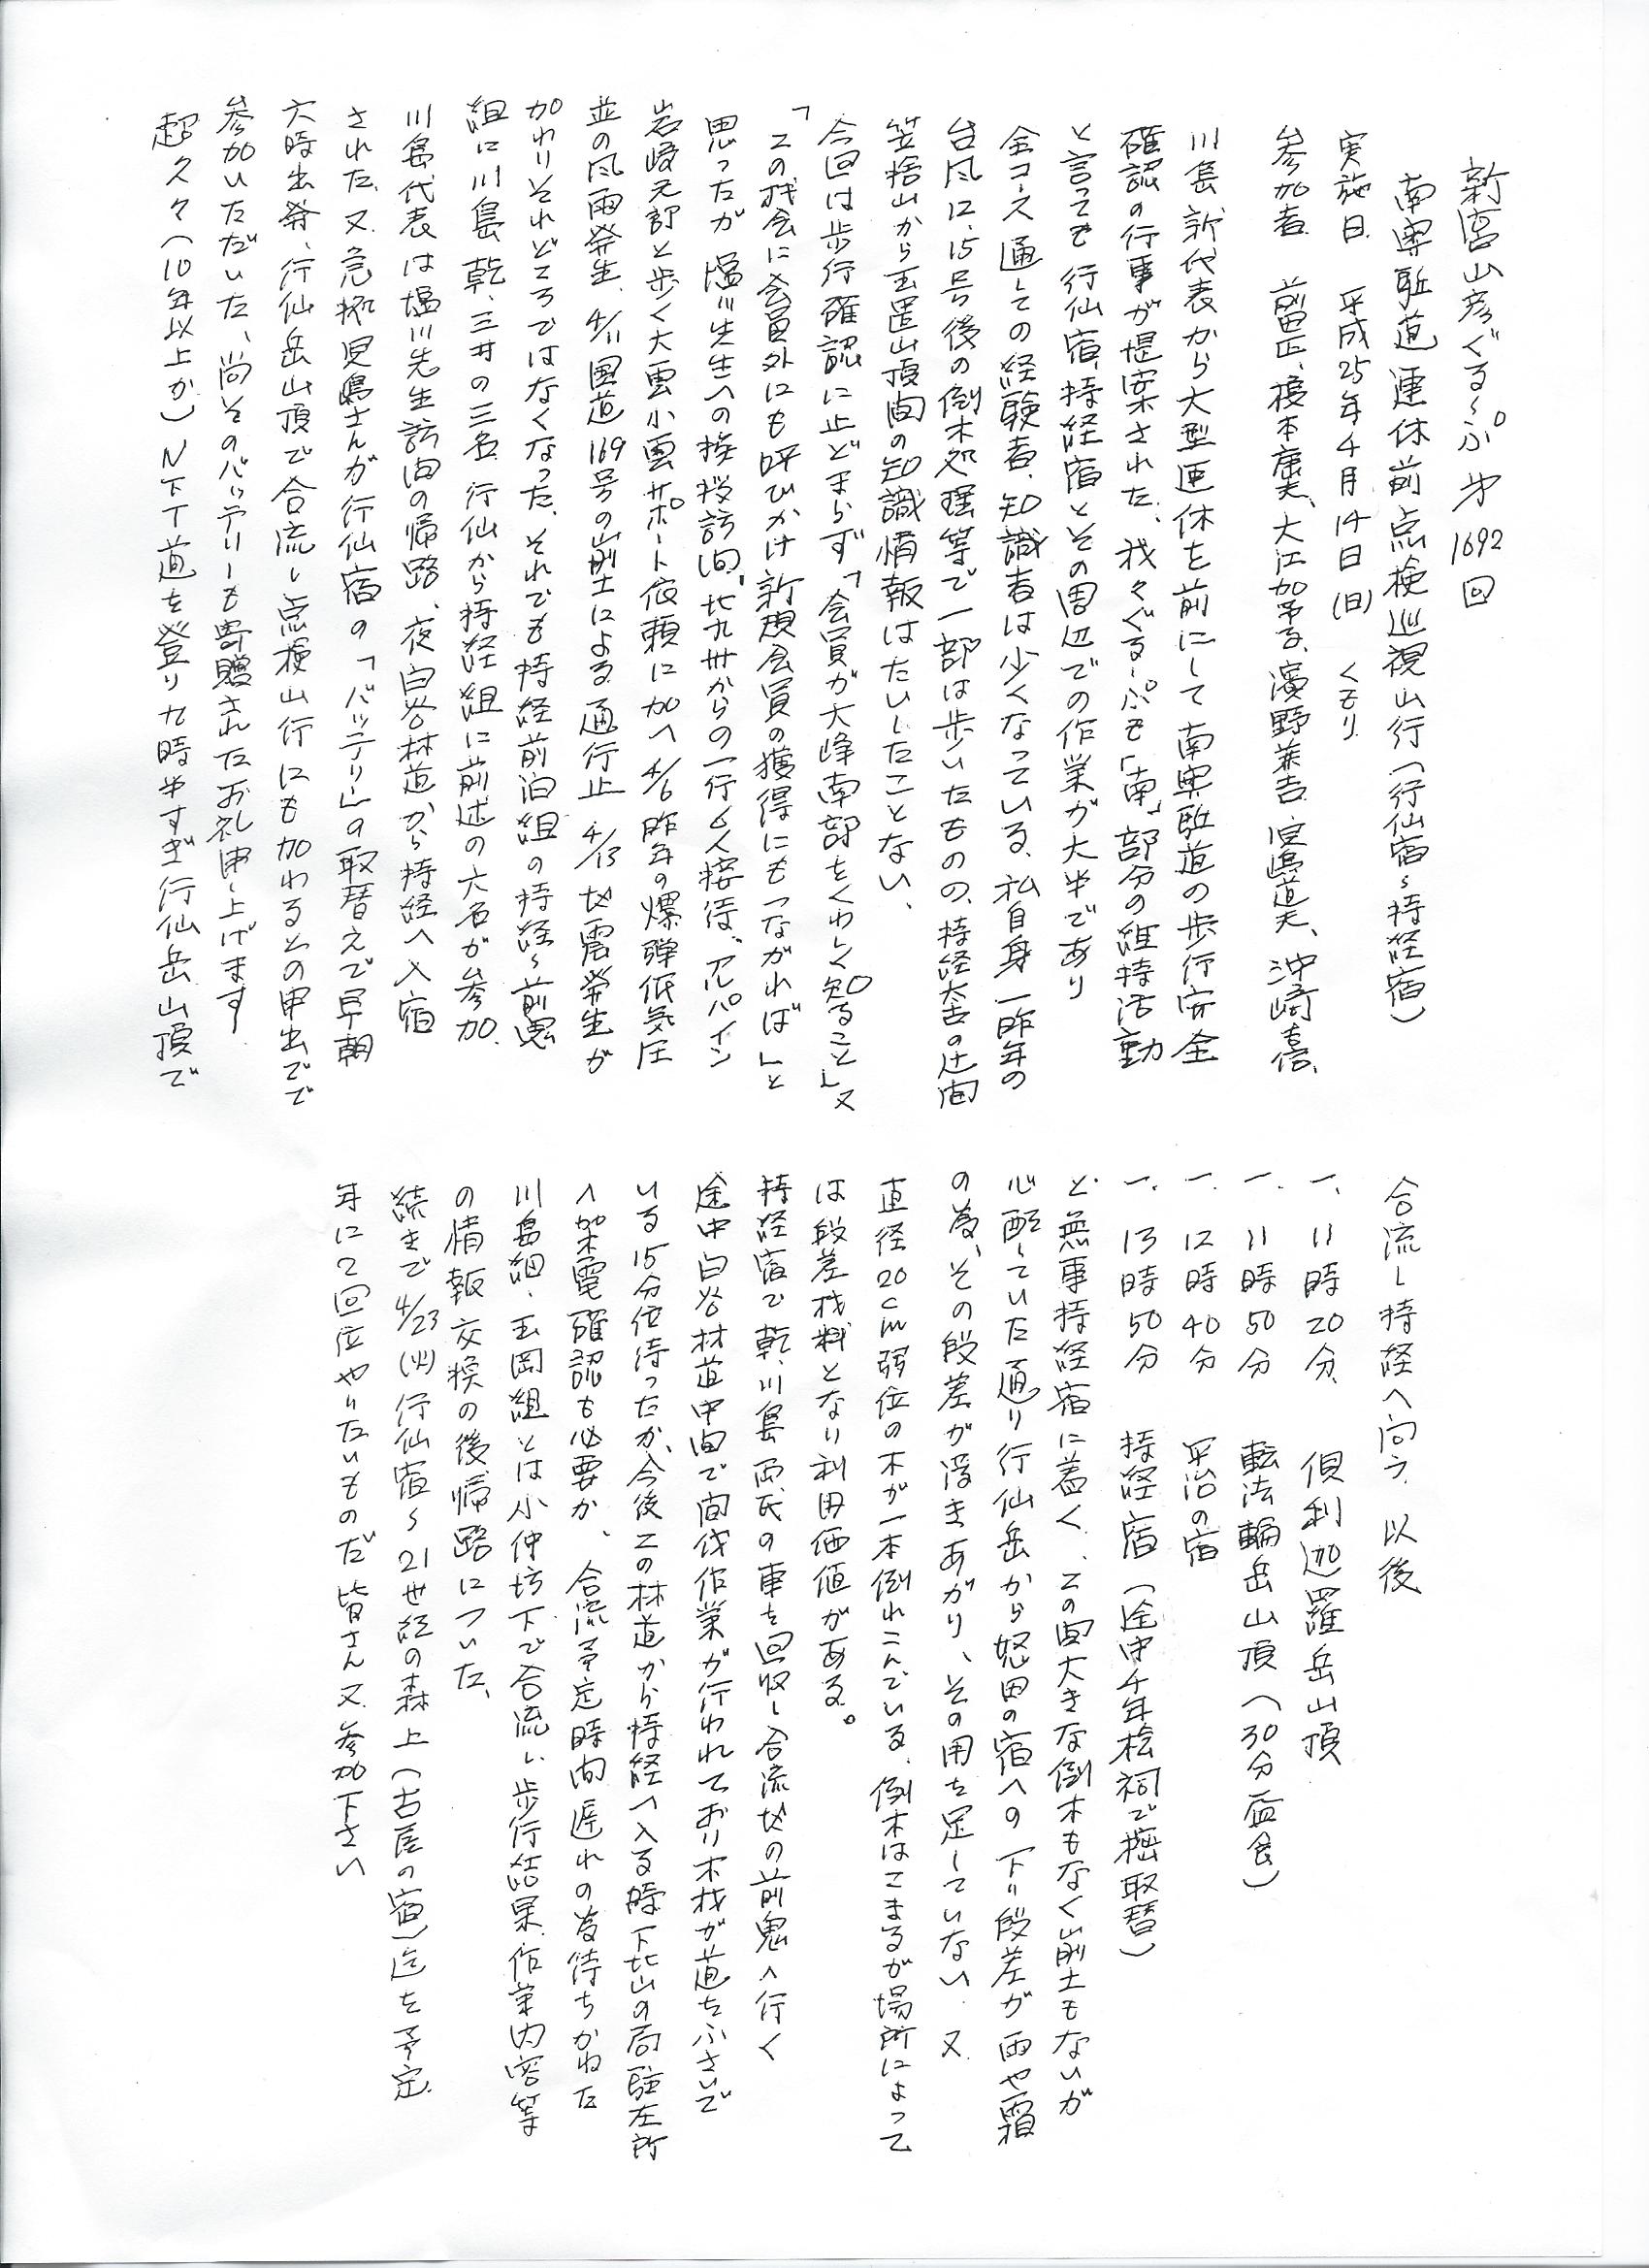 新宮山彦ぐるーぷ 第1692回
南奥駈道 連休前点検巡視山行（行仙宿～持経宿）
実施日 平成25年4月14日(日) くもり
参加者 前田正、橋本廣美、大江加予子、濱野兼吉、児嶋道夫、沖崎吉信、
川島新代表から大型連休を前にして南奥駈道の歩行安全
確認の行事が提案された、我々ぐるーぷも「南」部分の維持活動
と言っても行仙宿、持経宿とその周辺での作業が大半であり
全コース通しての経験者、知識者は少くなっている、私自身一昨年の
台風12、15号後の倒木処理等で一部は歩いたものの、持経大峯の辻間
笠捨山から玉置山頂間の知識情報はたいしたことない、
今回は歩行確認に止どまらず「会員が大峰南部をくわしく知ること」又
「この機会に会員外にも呼びかけ新規会員の獲得にもつながれば」と
思ったが 塩川先生への挨拶訪問、北九州からの一行6人接待、アルパイン
岩崎元郎と歩く大雲小雲サポート依頼に加へ4/6昨年の爆弾低気圧
並の風雨発生、4/11国道169号の崩土による通行止 4/13地震発生が
加わりそれどころではなくなった、それでも持経前泊組の持経～前鬼
組に川島、乾、三井の三名 行仙から持経組に前述の六名が参加、
川島代表は塩川先生訪問の帰路、夜白谷林道から持経へ入宿
された、又急拠児嶋さんが行仙宿の「バッテリー」の取替えで早朝
六時出発、行仙岳山頂で合流し点検山行にも加わるとの申出でで
参加いただいた、尚そのバッテリーも寄贈されたお礼申し上げます
超久々（10年以上か）NTT道を登り九時半すぎ行仙岳山頂で
合流し持経へ向う 以後
一、11時20分 倶利迦羅岳山頂
一、11時50分 転法輪岳山頂（30分昼食）
一、12時40分 平治の宿
一、13時50分 持経宿（途中千年桧祠で榊取替）
と、無事持経宿に着く、この間大きな倒木もなく崩土もないが
心配していた通り行仙岳から怒田の宿への下り段差が雨や霜
の為、その段差が浮きあがり、その用を足していない、又
直径20cm弱位の木が一本倒れこんでいる、倒木はこまるが場所によって
は段差材料となり利用価値がある。
持経宿で乾、川島両氏の車を回収し合流地の前鬼へ行く
途中白谷林道中間で間伐作業が行われており木材が道をふさいで
いる15分位待ったが、今後この林道から持経へ入る時下北山の局駐在所
へ架電確認も必要か、合流予定時間遅れの為待ちかねた
川島組、玉岡組とは小仲坊下で合流し歩行結果、作業内容等
の情報交換の後帰路についた、
続きで4/23(火)行仙宿～21世紀の森上（古屋の宿）迄を予定
年に2回位やりたいものだ皆さん又参加下さい